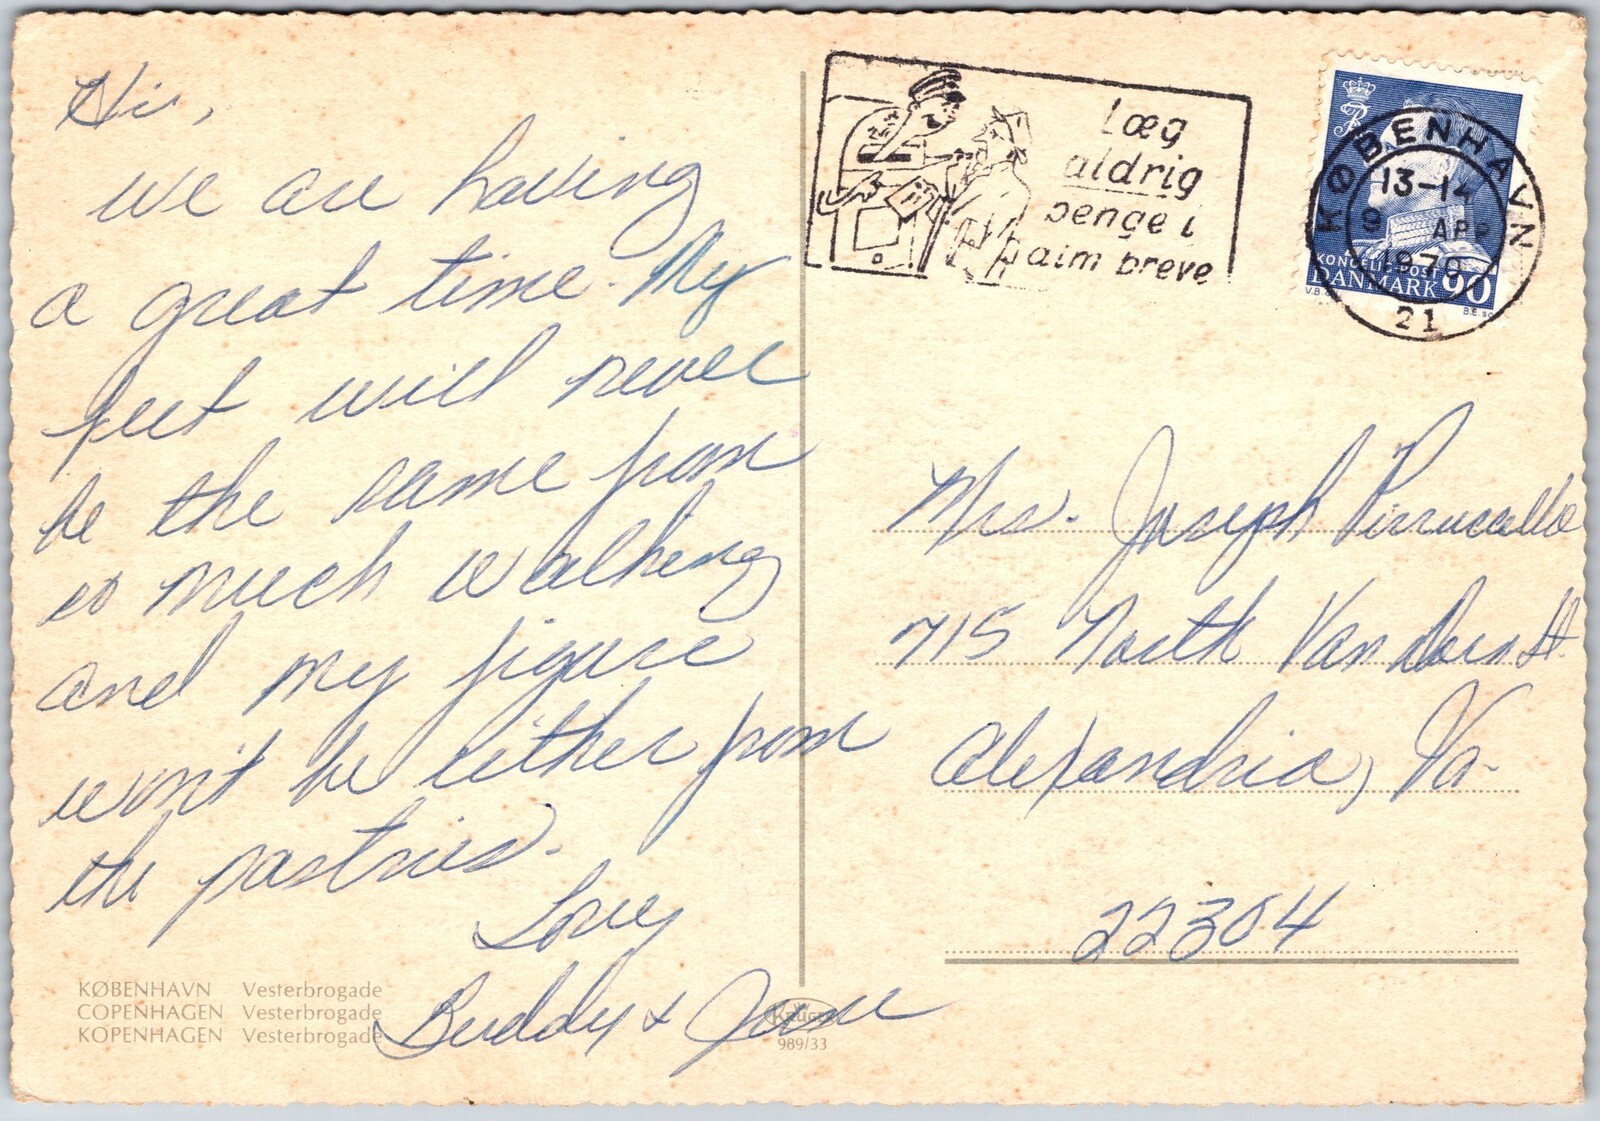 Hi,
we are having
a great time. My
feet will never
be the same from
so much walking
and my figure
won't be either from
the pastries.
Love
Buddy + Jane
KØBENHAVN Vesterbrogade
COPENHAGEN Vesterbrogade
KOPENHAGEN Vesterbrogade
KRÜGER
989/33
Læg
aldrig
penge i
alm breve
KØBENHAVN
13-14
9 APR
1970
21
KONGELIG POST
DANMARK 90
Mrs. Joseph
715 North Van Dorn St.
Alexandria, Va.
22304